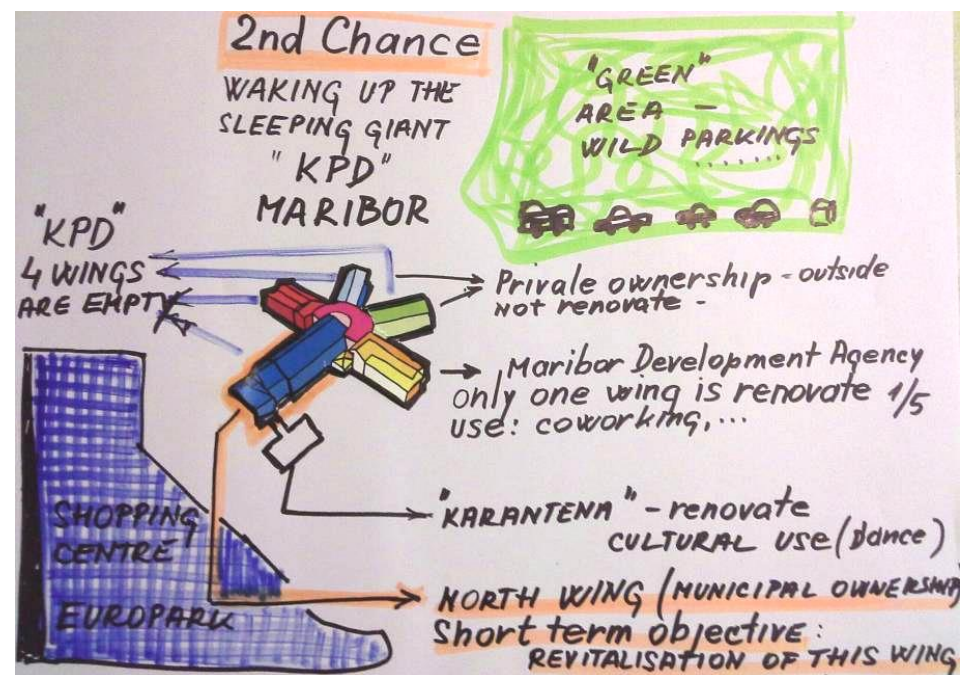 2nd Chance
WAKING UP THE
SLEEPING GIANT
"KPD"
MARIBOR
"GREEN"
AREA -
WILD PARKINGS
"KPD"
4 WINGS
ARE EMPTY
Private ownership - outside
not renovate -
Maribor Development Agency
only one wing is renovate 1/5
use: coworking,...
"KARANTENA" - renovate
CULTURAL use (Dance)
SHOPPING
CENTRE
EUROPARK
NORTH WING (MUNICIPAL OWNERSHIP)
Short term objective:
REVITALISATION OF THIS WING